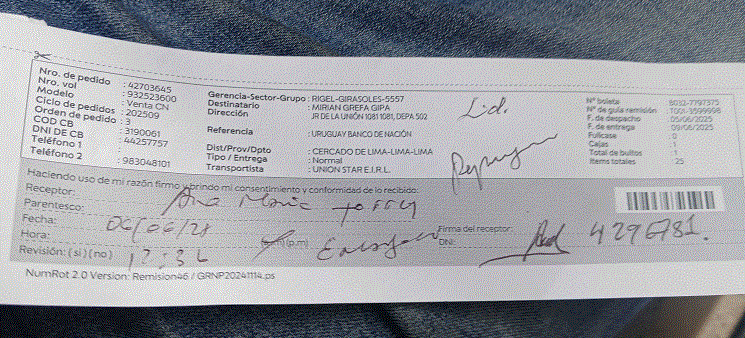 Nro. de pedido : 42703645
Nro. vol : 932523600
Modelo : Venta CN
Ciclo de pedidos : 202509
Orden de pedido : 3
COD CB : 3190061
DNI DE CB : 44257757
Teléfono 1 :
Teléfono 2 : 983048101
Gerencia-Sector-Grupo : RIGEL-GIRASOLES-5557
Destinatario : MIRIAN GREFA GIPA
Dirección : JR DE LA UNIÓN 1081 1081, DEPA 502
Referencia : URUGUAY BANCO DE NACIÓN
Dist/Prov/Dpto : CERCADO DE LIMA-LIMA-LIMA
Tipo / Entrega : Normal
Transportista : UNION STAR E.I.R.L.
Lid.
N° boleta
N° de guía remisión
F. de despacho 05/06/2025
F. de entrega 09/06/2025
Fullcase 0
Cajas 1
Total de bultos 1
Items totales : 25
Haciendo uso de mi razón firmo y brindo mi consentimiento y conformidad de lo recibido:
Receptor: Ana Maria
Parentesco:
Fecha: 06/06/25
Hora: 12:36 (p.m)
Revisión: ( si ) ( no )
Firma del receptor:
DNI:
NumRot 2.0 Version: Remision46 / GRNP20241114.ps